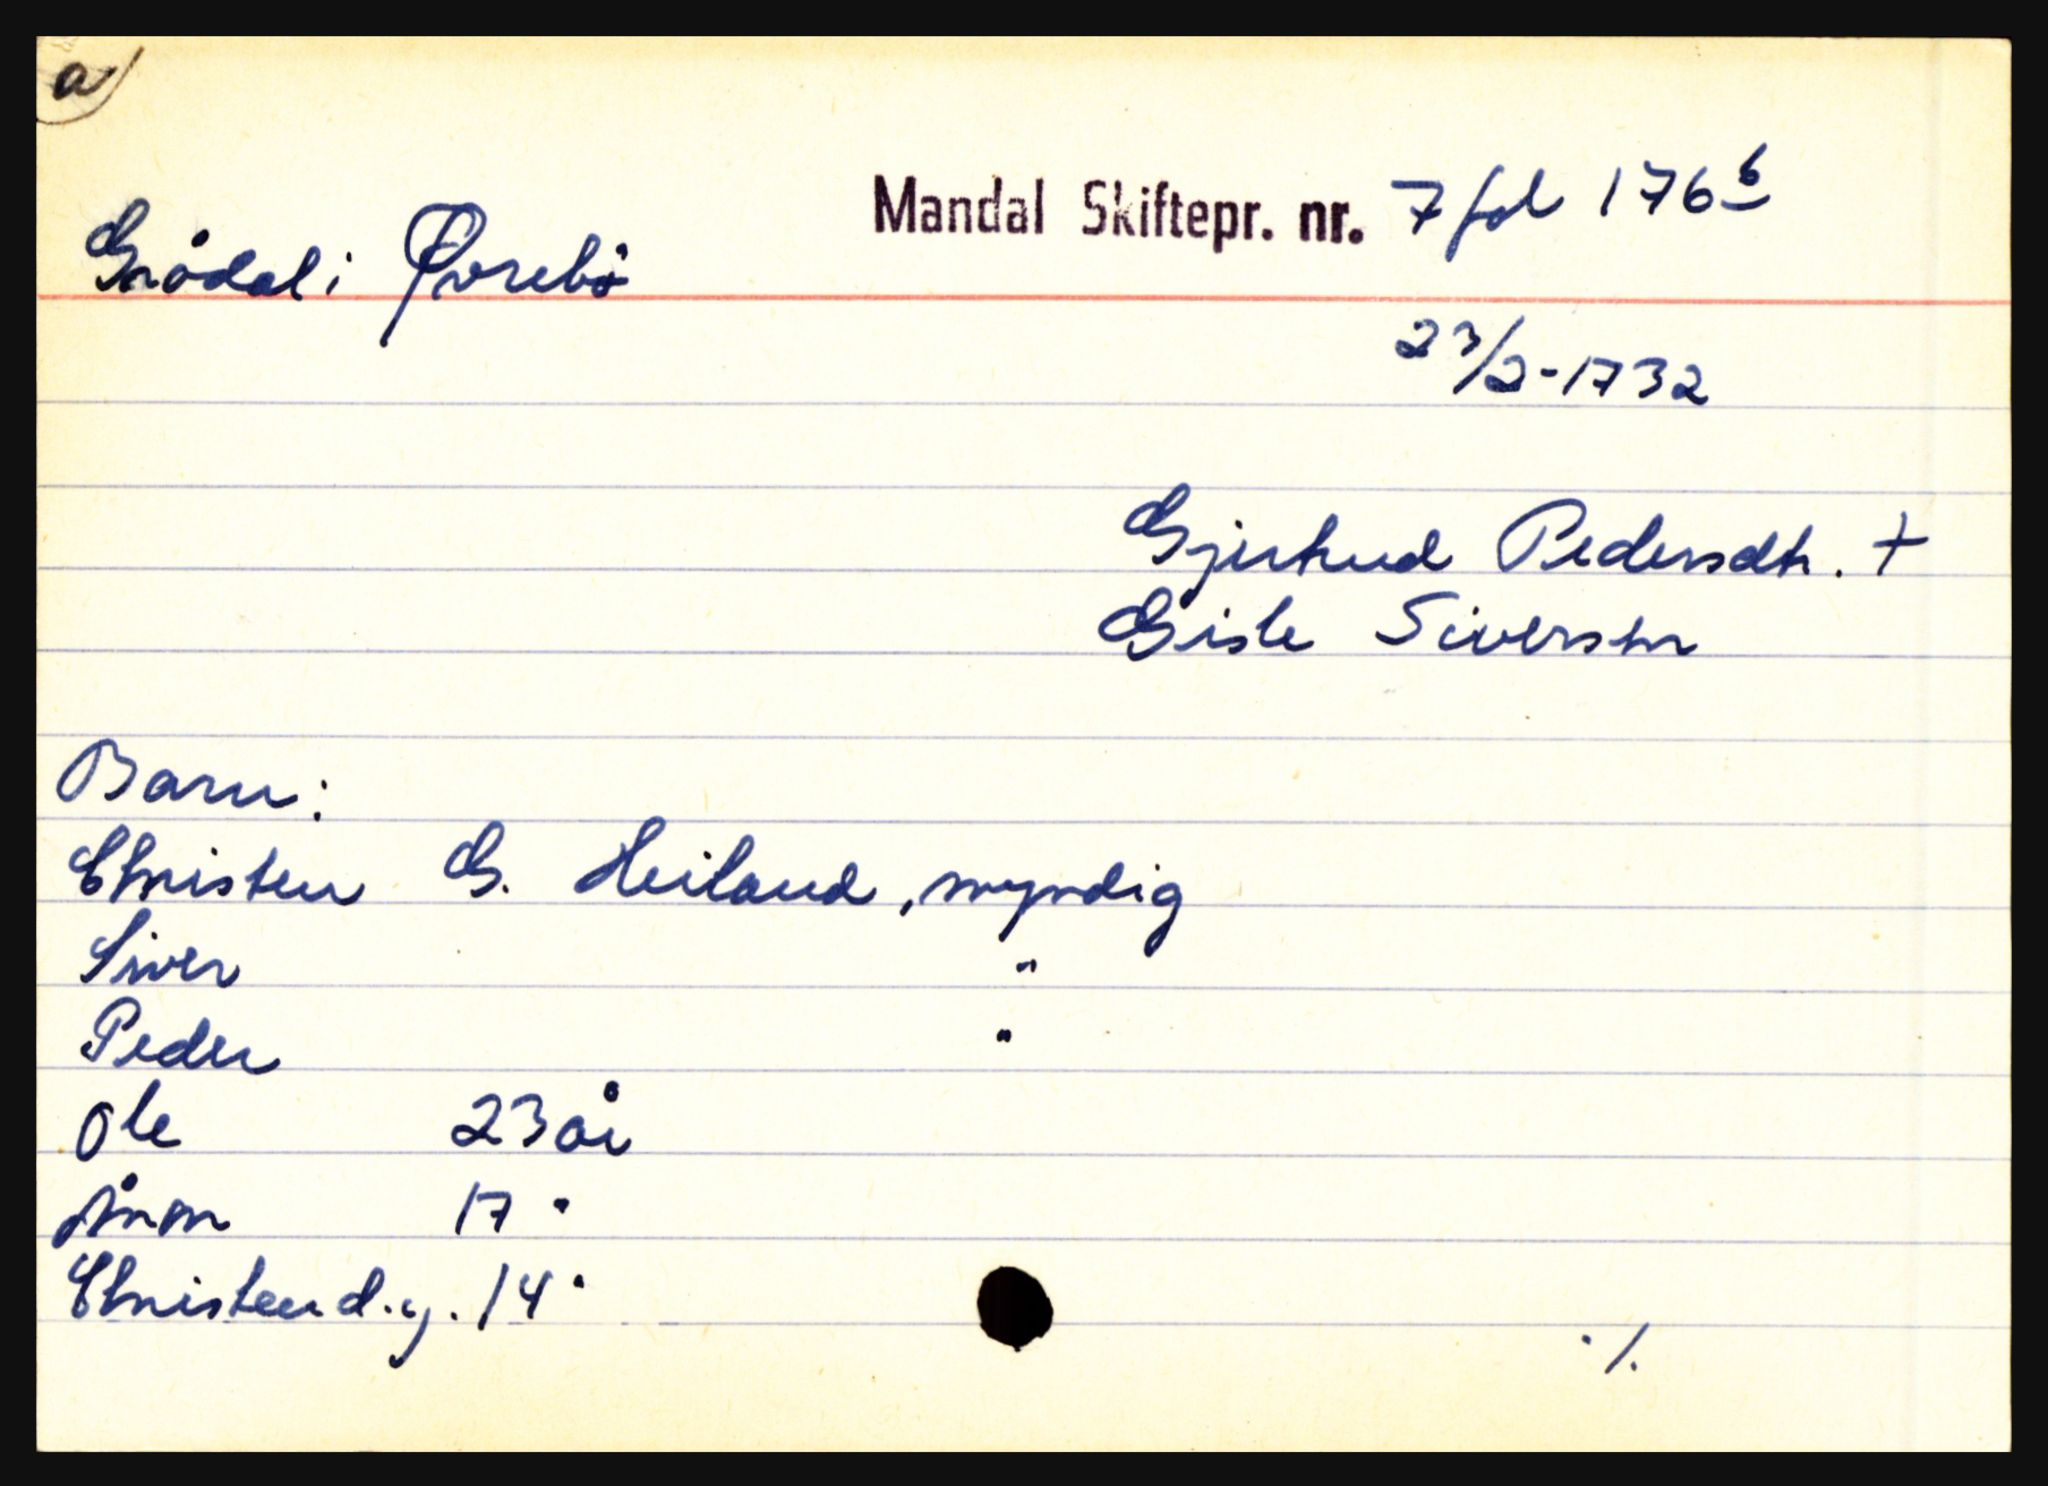 a
Mandal Skiftepr. nr. 7 fol 176 b
Grådal i Øvrebö
23/2-1732
Gjertrud Pedersdtr. +
Gisle Siversen
Barn:
Christen G. Heiland, myndig
Siver "
Peder "
Ole 23 år
Anon 17 "
Christen d.y. 14 "
./.